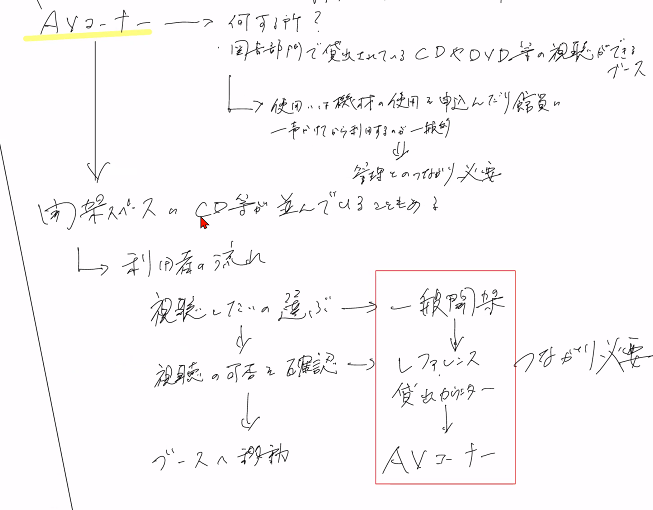 AVコーナー → 何する所?
・図書部門で貸出されているCDやDVD等の視聴ができる
ブース
→ 使用には機材の使用を申込んだり館員に
一声かけてから利用するのが一般的
管理とのつながり必要
(開)架スペースにCD等が並んでいることもある
→ 利用者の流れ
視聴したいの選ぶ → 一般開架
視聴の可否を確認 → レファレンス つながり必要
貸出カウンター
ブースへ移動 AVコーナー